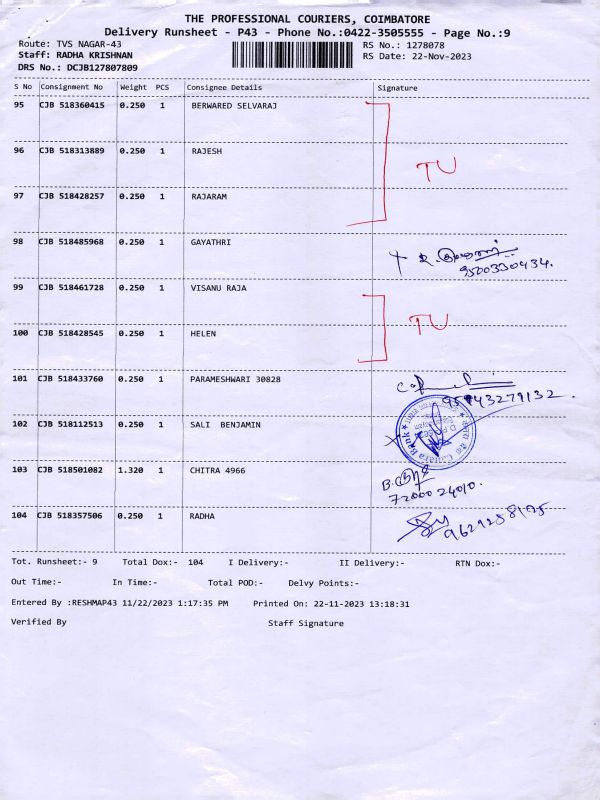 THE PROFESSIONAL COURIERS, COIMBATORE
Delivery Runsheet - P43 - Phone No.:0422-3505555 - Page No.:9
Route: TVS NAGAR-43 RS No.: 1278078
Staff: RADHA KRISHNAN RS Date: 22-Nov-2023
DRS No.: DCJB127807809
S No Consignment No Weight PCS Consignee Details Signature
95 CJB 518360415 0.250 1 BERWARED SELVARAJ
96 CJB 518313889 0.250 1 RAJESH
TU
97 CJB 518428257 0.250 1 RAJARAM
98 CJB 518485968 0.250 1 GAYATHRI
9500330434.
99 CJB 518461728 0.250 1 VISANU RAJA
TU
100 CJB 518428545 0.250 1 HELEN
101 CJB 518433760 0.250 1 PARAMESHWARI 30828
102 CJB 518112513 0.250 1 SALI BENJAMIN
Canara Bank
103 CJB 518501082 1.320 1 CHITRA 4966
7200024010.
104 CJB 518357506 0.250 1 RADHA
Tot. Runsheet:- 9 Total Dox:- 104 I Delivery:- II Delivery:- RTN Dox:-
Out Time:- In Time:- Total POD:- Delvy Points:-
Entered By :RESHMAP43 11/22/2023 1:17:35 PM Printed On: 22-11-2023 13:18:31
Verified By Staff Signature